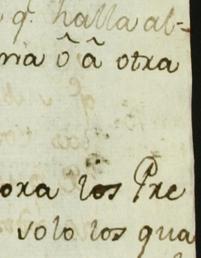 q̃ halla al-
ma ô â otra
ora los Pre
solo los qua